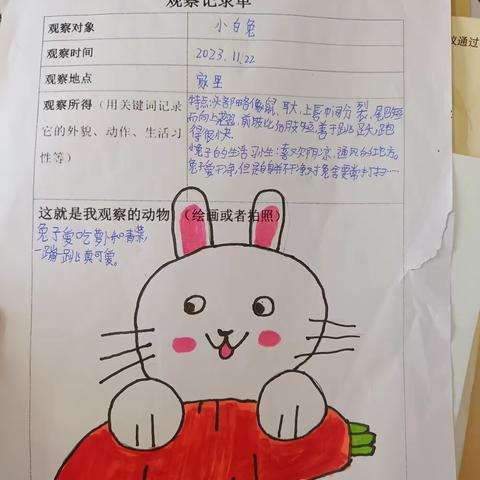 观察记录单
观察对象 小白兔
观察时间 2023.11.22
观察地点 家里
观察所得(用关键词记录
它的外貌、动作、生活习
性等)
特点:头部略像鼠,耳大,上唇中间分裂,尾巴短
而向上翘,前肢比后肢短,善于跳跃,跑
得很快。
兔子的生活习性:喜欢阴凉,通风的地方。
兔子爱干净,但是自身并不干净,对兔舍要常打扫……
这就是我观察的动物!(绘画或者拍照)
兔子爱吃萝卜和青菜,
一蹦一跳真可爱。
议通过